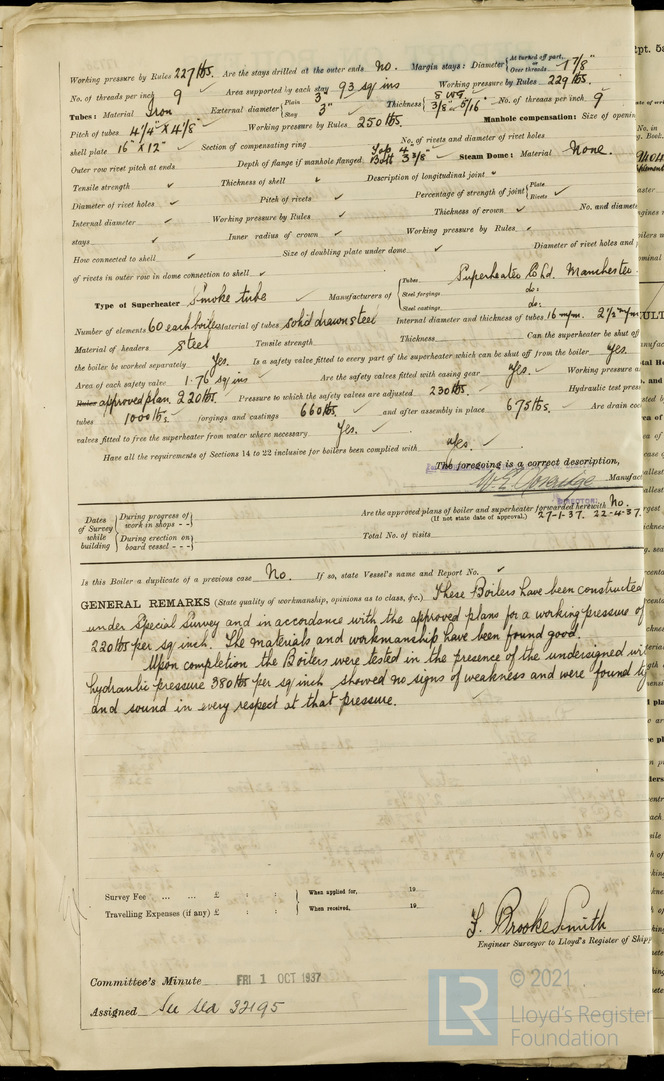 Working pressure by Rules 227 lbs. Are the stays drilled at the outer ends No. Margin stays: Diameter { At turned off part, or Over threads 1 7/8"
No. of threads per inch 9 Area supported by each stay 93 sq ins Working pressure by Rules 229 lbs.
Tubes: Material Iron External diameter { Plain 3" Stay 3" Thickness { 8 WG 3/8" & 5/16" No. of threads per inch 9
Pitch of tubes 4 1/4" X 4 1/8" Working pressure by Rules 250 lbs. Manhole compensation: Size of openin
shell plate 16" X 12" Section of compensating ring No. of rivets and diameter of rivet holes
Outer row rivet pitch at ends Depth of flange if manhole flanged Top 4" Bott 3 3/8" Steam Dome: Material None.
Tensile strength ✓ Thickness of shell ✓ Description of longitudinal joint
Diameter of rivet holes ✓ Pitch of rivets ✓ Percentage of strength of joint { Plate Rivets ✓
Internal diameter ✓ Working pressure by Rules ✓ Thickness of crown ✓ No. and diamete
stays ✓ Inner radius of crown ✓ Working pressure by Rules ✓
How connected to shell ✓ Size of doubling plate under dome ✓ Diameter of rivet holes and p
of rivets in outer row in dome connection to shell ✓
Type of Superheater Smoke tube ✓ Manufacturers of { Tubes Superheater Co Ld. Manchester
Steel forgings do:
Steel castings do:
Number of elements 60 each boiler Material of tubes solid drawn steel Internal diameter and thickness of tubes 16 m/m. 2 1/2 m/m
Material of headers Steel Tensile strength Thickness Can the superheater be shut off
the boiler be worked separately Yes. Is a safety valve fitted to every part of the superheater which can be shut off from the boiler Yes.
Area of each safety valve 1.76 sq ins Are the safety valves fitted with easing gear Yes. ✓ Working pressure a
Rules approved plan 220 lbs. Pressure to which the safety valves are adjusted 230 lbs. Hydraulic test press
tubes 1000 lbs. forgings and castings 660 lbs. and after assembly in place 675 lbs. Are drain coc
valves fitted to free the superheater from water where necessary Yes. ✓
Have all the requirements of Sections 14 to 22 inclusive for boilers been complied with Yes. ✓
The foregoing is a correct description,
Manufact
DIRECTOR.
Dates of Survey while building { During progress of work in shops - - During erection on board vessel - - -
Are the approved plans of boiler and superheater forwarded herewith No.
(If not state date of approval.) 27-1-37. 22-4-37.
Total No. of visits
Is this Boiler a duplicate of a previous case No. If so, state Vessel's name and Report No. ✓
GENERAL REMARKS (State quality of workmanship, opinions as to class, &c.) These Boilers have been constructed
under Special Survey and in accordance with the approved plans for a working pressure of
220 lbs per sq inch. The materials and workmanship have been found good.
Upon completion the Boilers were tested in the presence of the undersigned wi
hydraulic pressure 380 lbs per sq inch showed no signs of weakness and were found tig
and sound in every respect at that pressure.
Survey Fee ... ... £ : : When applied for, 19
Travelling Expenses (if any) £ : : When received, 19
F. Brooke Smith
Engineer Surveyor to Lloyd's Register of Shipp
Committee's Minute FRI 1 OCT 1937
Assigned See 32195
LR
© 2021
Lloyd's Register
Foundation